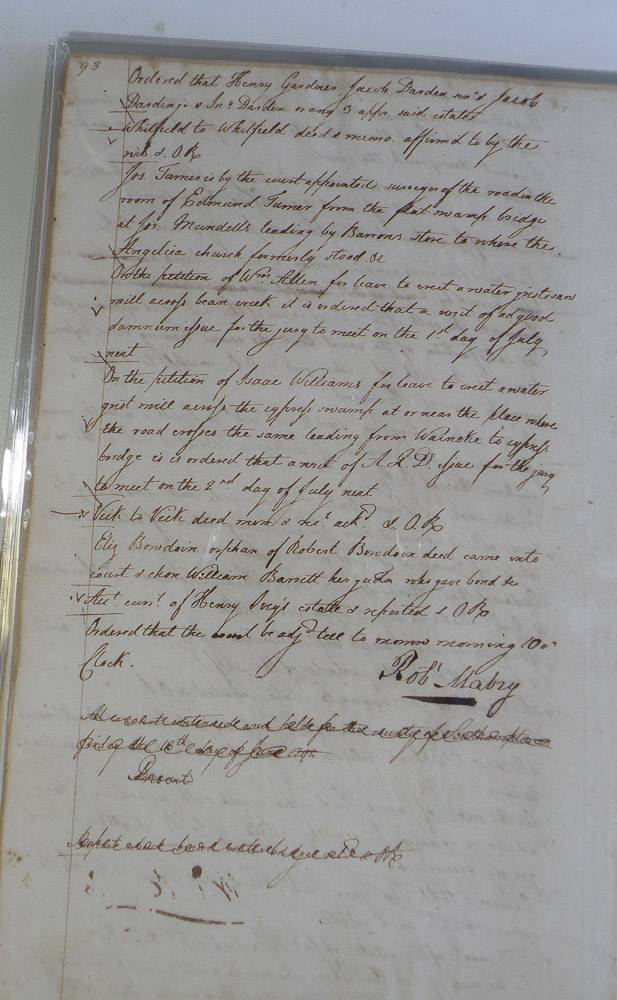 93
Ordered that Henry Gardner, Jacob Darden senr Jacob
Darden jr & Jno Darden or any 3 appr. said estate
Whitfield to Whitfield deed & memo. affirm'd to by the
wits & O.R
Jos. Turner is by the court appointed surveyor of the road in the
room of Edmund Turner from the flat swamp bridge
at Jos. Mundells leading by Barrons store to where the
Angelica church formerly stood &c
On the petition of Wm. Allen for leave to erect a water grist & saw
mill across bean creek it is ordered that a writ of ad quod
damnum issue for the jury to meet on the 1st day of July
next
On the petition of Isaac Williams for leave to erect a water
grist mill across the cypress swamp at or near the place where
the road crosses the same leading from Wainoke to cypress
bridge is is ordered that a writ of A. Q. D. issue for the jury
to meet on the 2nd day of July next
Vick to Vick deed mem & rect. ackd & O.R
Eliz Bowdoin orphan of Robert Bowdoin deed came into
court & chose William Barrett her gudn who gave bond &c
Act. curt. of Henry Ivy's estate & reported & O.R
Ordered that the court be adjd. till to morrow morning 10 o
Clock.
Robt Mabry
At a court continued and held for the county of Southampton
friday the 18th day of June
Present